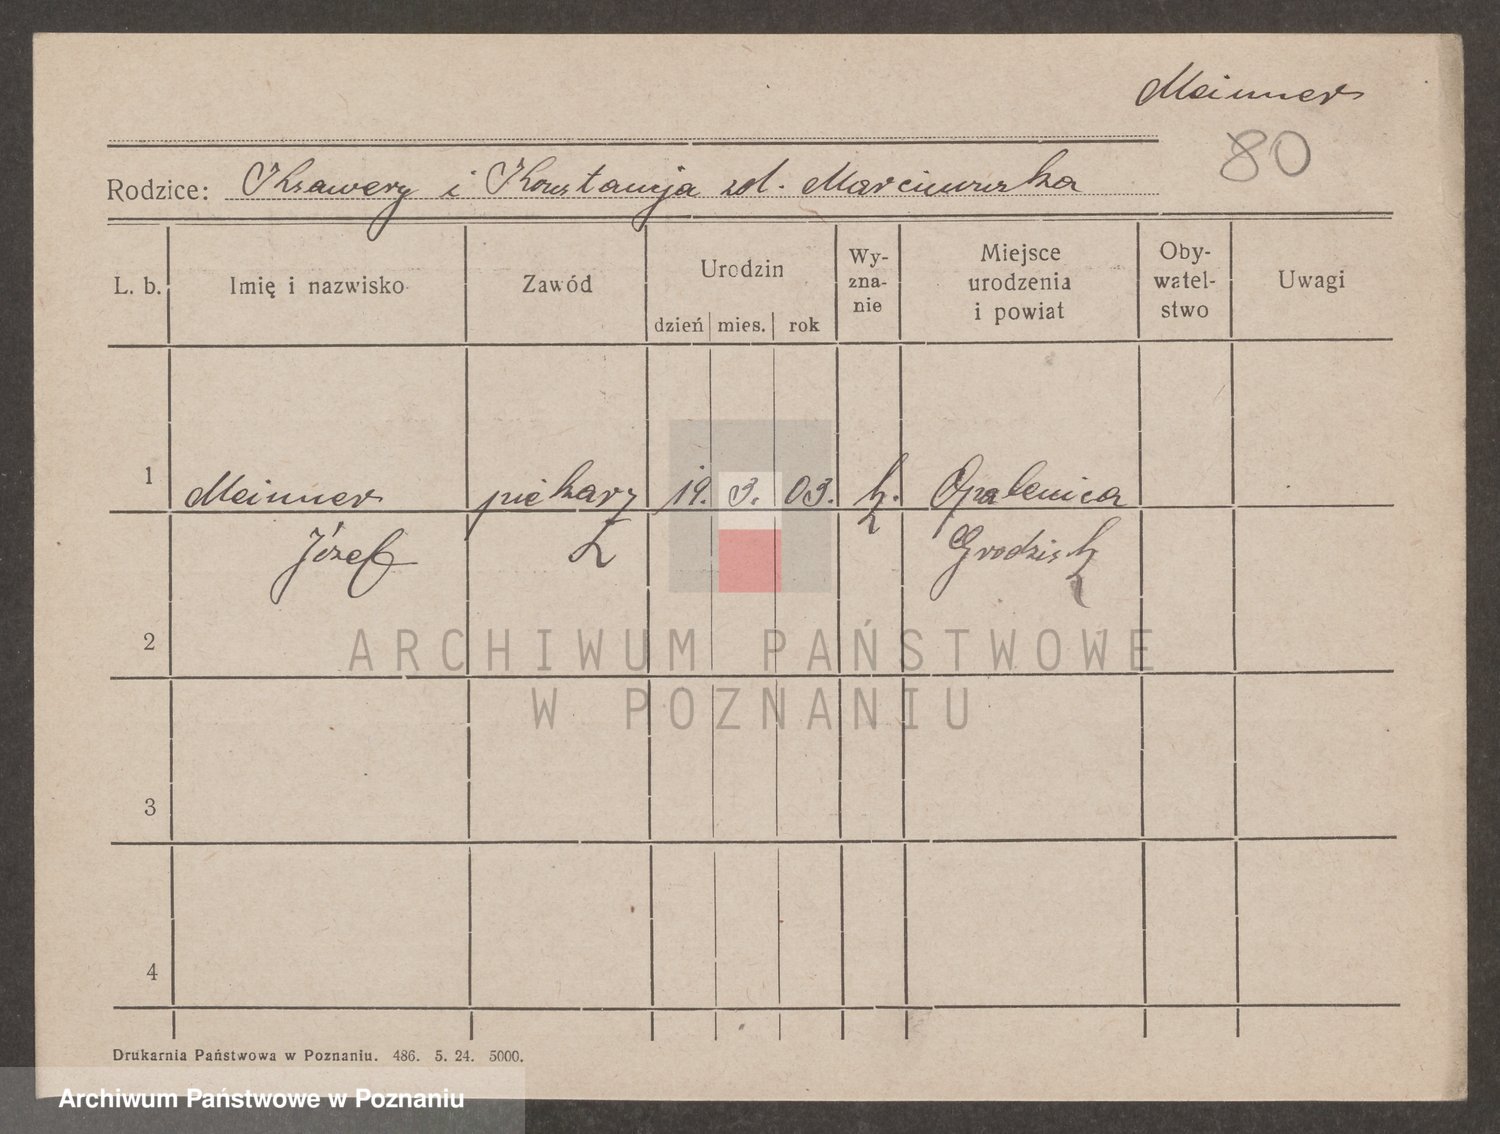 Meinner
80
Rodzice: Ksawery i Konstancja zd. Marcinowska
L. b. Imię i nazwisko Zawód Urodzin dzień mies. rok Wy-zna-nie Miejsce urodzenia i powiat Oby-watel-stwo Uwagi
1 Meinner piekarz 19. 3. 03. k. Opalenica
Józef Grodzisk
2
ARCHIWUM PAŃSTWOWE
W POZNANIU
3
4
Drukarnia Państwowa w Poznaniu. 486. 5. 24. 5000.
Archiwum Państwowe w Poznaniu